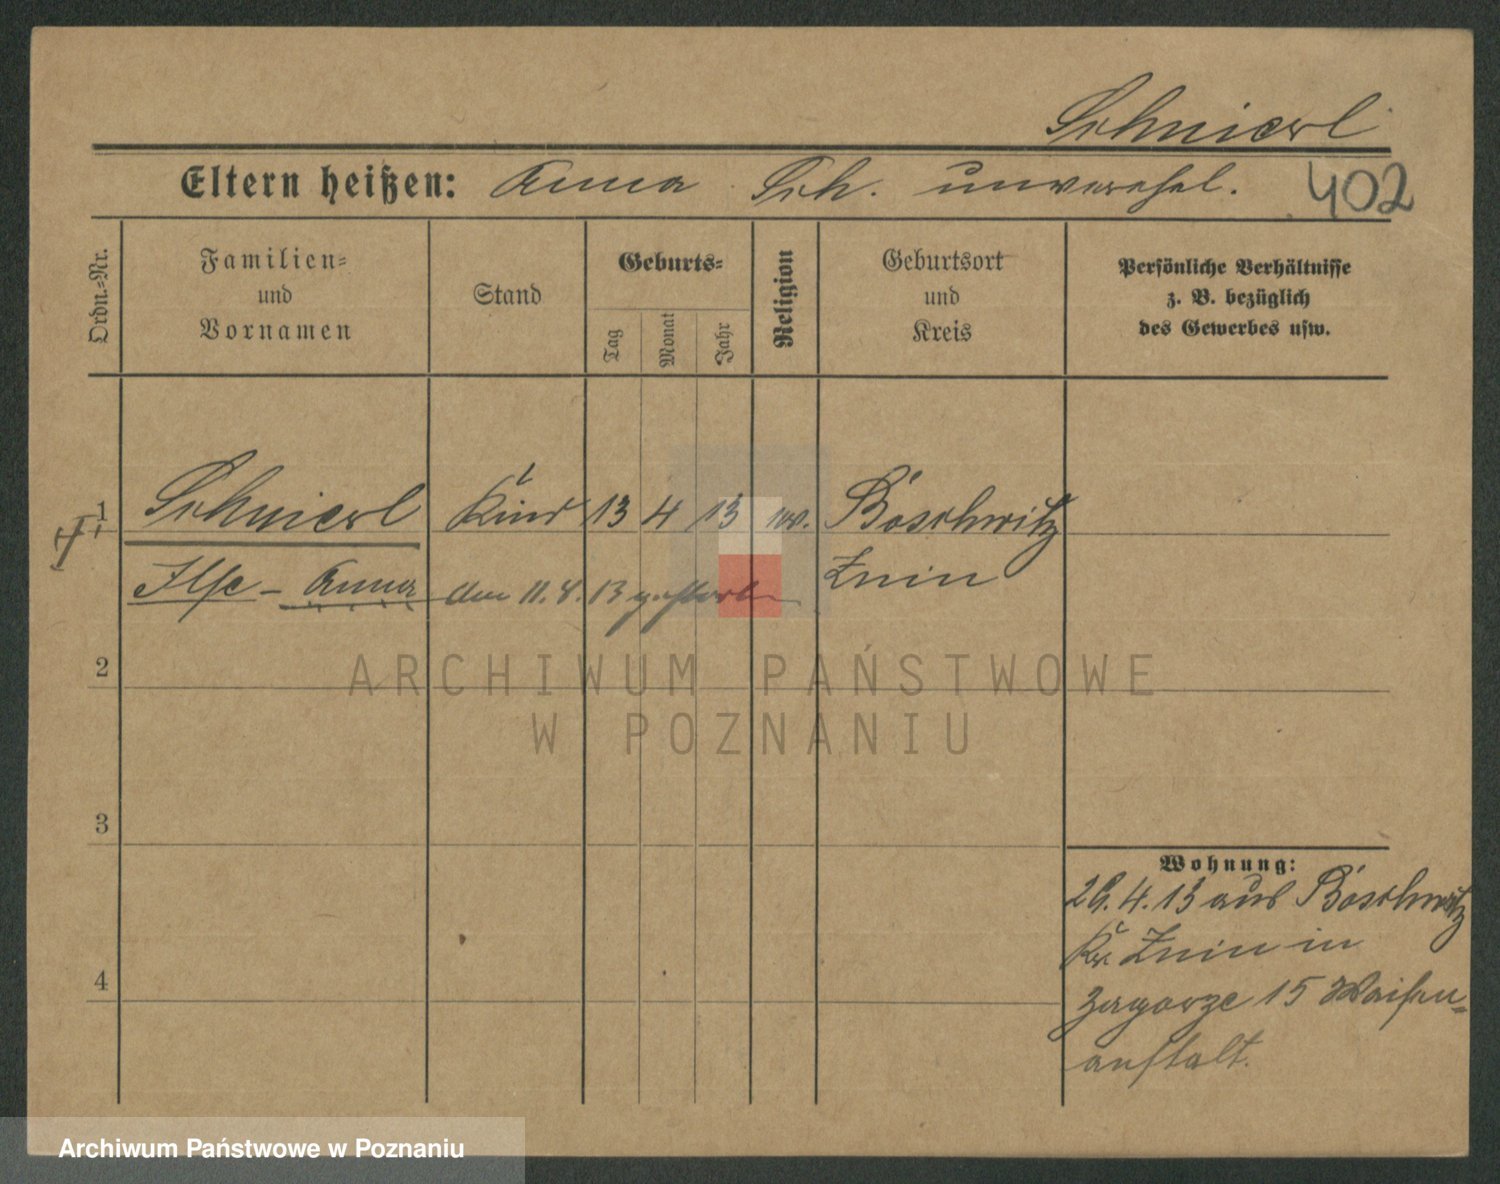 Schnierl
Eltern heißen: Anna Sch. unverehel.
402
Ordn.-Nr.
Familien-
und
Vornamen
Stand
Geburts-
Tag
Monat
Jahr
Religion
Geburtsort
und
Kreis
Persönliche Verhältnisse
z. B. bezüglich
des Gewerbes usw.
1 Schnierl Kind 13 4 13 ev. Böschwitz
Ilse - Anna den 11. 8. 13 gestorb Znin
2
3
4
Wohnung:
29. 4. 13 aus Böschwitz
Kr. Znin in
Zagorze 15 Waisen-
anstalt.
ARCHIWUM PAŃSTWOWE
W POZNANIU
Archiwum Państwowe w Poznaniu